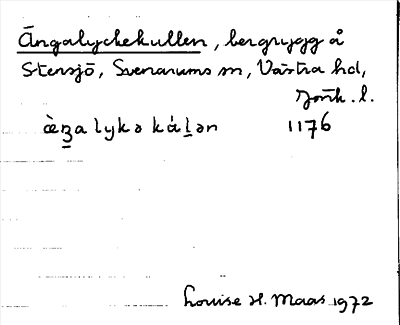 Ängalyckekullen, bergrygg å
Stensjö, Svenarums sn, Västra hd,
Jönk. l.
1176
Louise H. Maas 1972